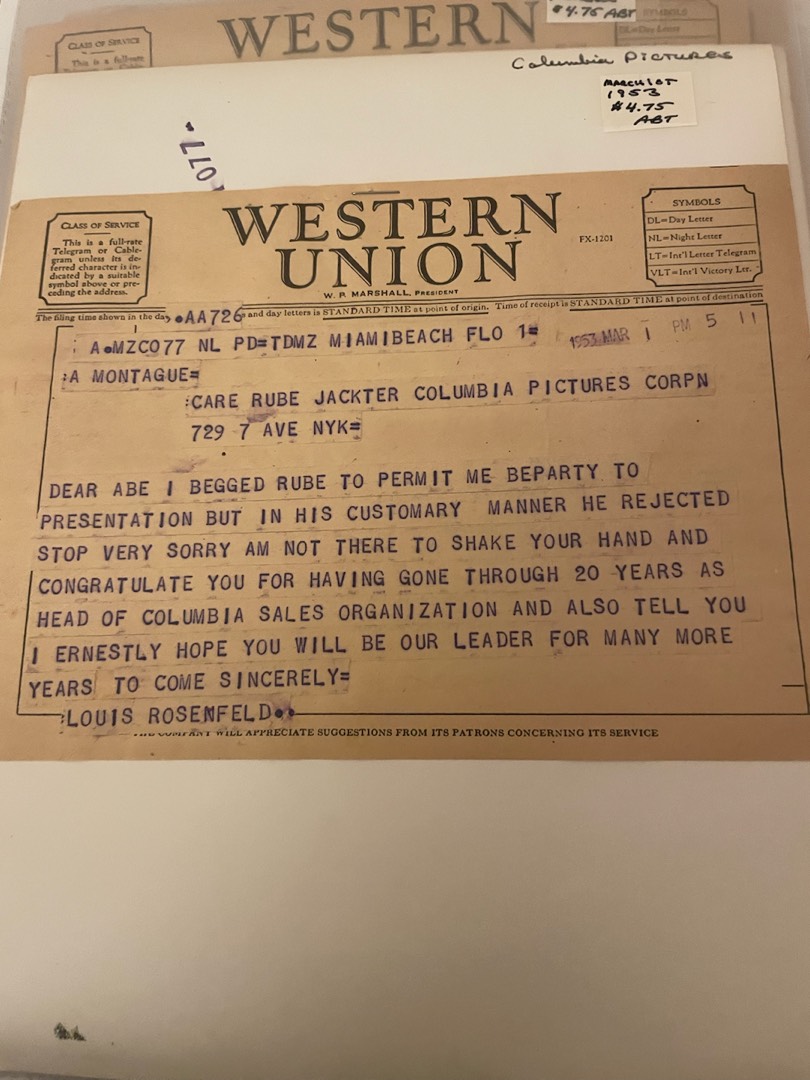 $4.75 ABT
CLASS OF SERVICE
This is a full-rate
WESTERN
SYMBOLS
DL=Day Letter
Columbia PICTURES
MARCH 1ST
1953
$4.75
ABT
077
CLASS OF SERVICE
This is a full-rate
Telegram or Cable-
gram unless its de-
ferred character is in-
dicated by a suitable
symbol above or pre-
ceding the address.
WESTERN
UNION
W. P. MARSHALL, PRESIDENT
FX-1201
SYMBOLS
DL=Day Letter
NL=Night Letter
LT=Int'l Letter Telegram
VLT=Int'l Victory Ltr.
The filing time shown in the day AA726 and day letters is STANDARD TIME at point of origin. Time of receipt is STANDARD TIME at point of destination
A MZC077 NL PD=TDMZ MIAMIBEACH FLO 1=
1953 MAR 1 PM 5 11
:A MONTAGUE=
:CARE RUBE JACKTER COLUMBIA PICTURES CORPN
729 7 AVE NYK=
DEAR ABE I BEGGED RUBE TO PERMIT ME BEPARTY TO
PRESENTATION BUT IN HIS CUSTOMARY MANNER HE REJECTED
STOP VERY SORRY AM NOT THERE TO SHAKE YOUR HAND AND
CONGRATULATE YOU FOR HAVING GONE THROUGH 20 YEARS AS
HEAD OF COLUMBIA SALES ORGANIZATION AND ALSO TELL YOU
I ERNESTLY HOPE YOU WILL BE OUR LEADER FOR MANY MORE
YEARS TO COME SINCERELY=
:LOUIS ROSENFELD
THE COMPANY WILL APPRECIATE SUGGESTIONS FROM ITS PATRONS CONCERNING ITS SERVICE